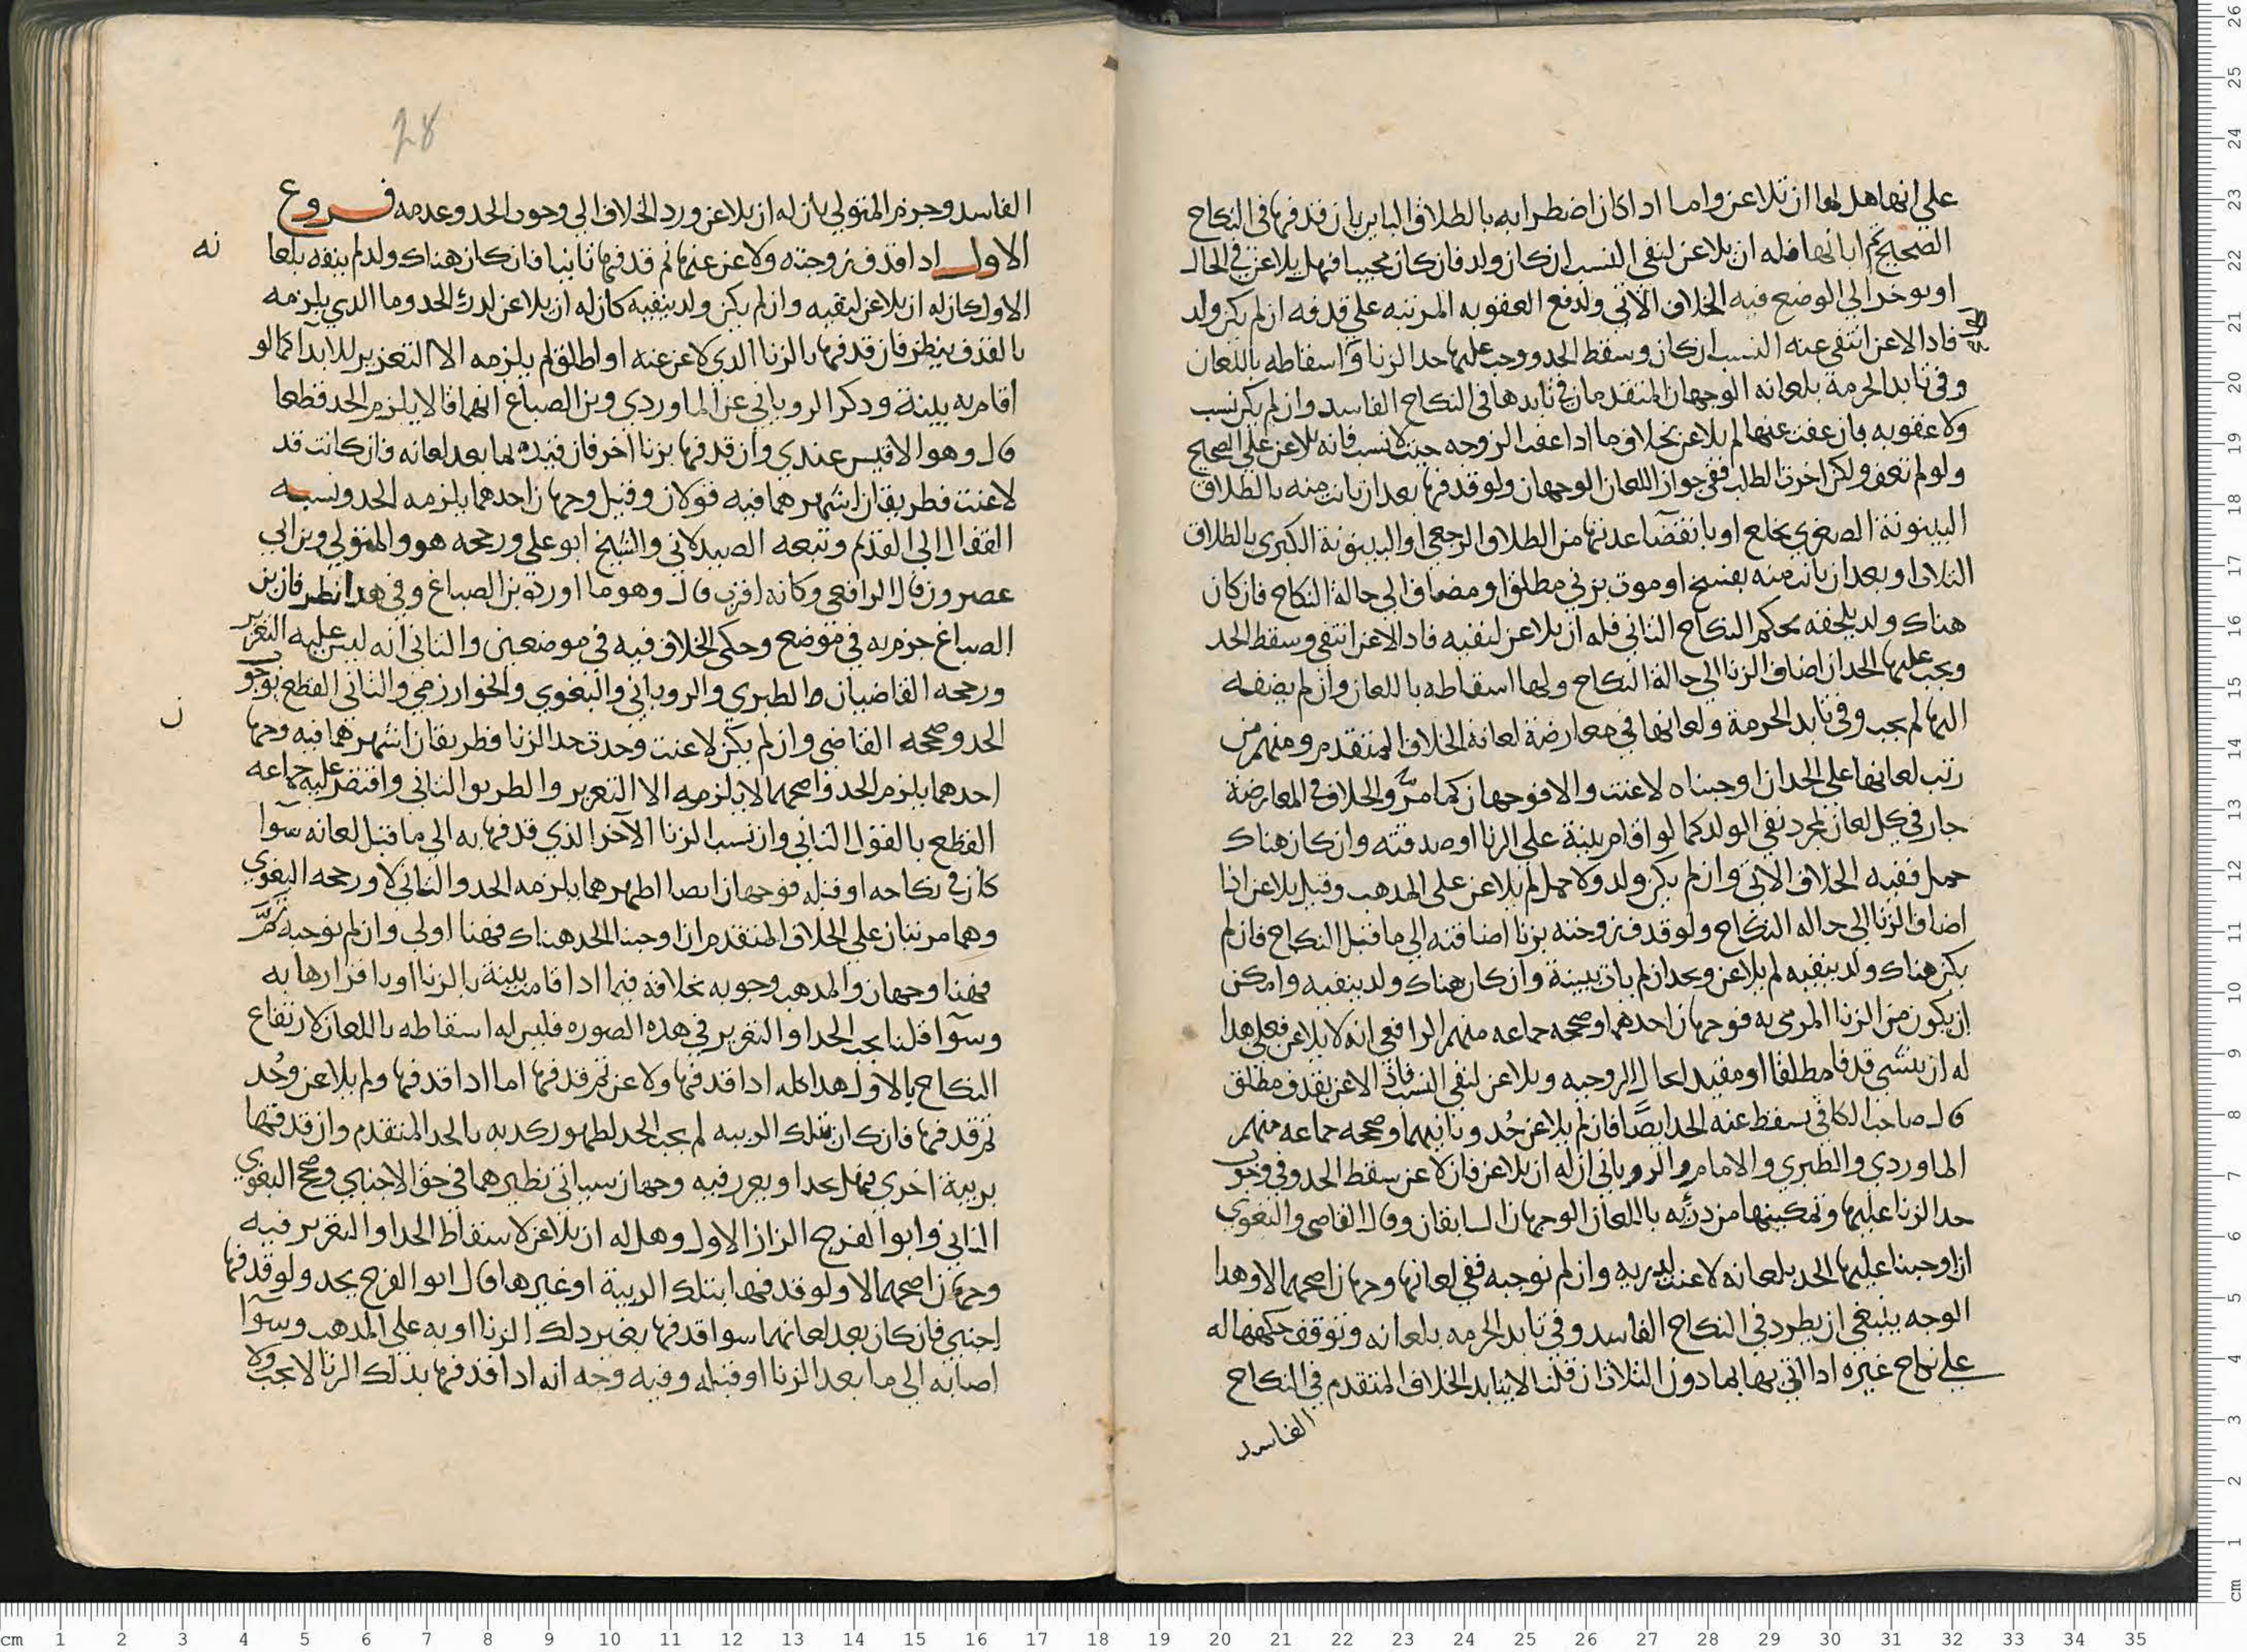 على انها هل لها ان تلاعن واما اذا كان اضطرابه بالطلاق الباين بان قذفها في النكاح
الصحيح ثم ابانها فله ان يلاعن لنفي النسب ان كان ولد فان كان فهل يلاعن في الحال
او يوخر الى الوضع فيه الخلاف الاتي ولدفع العقوبه المرتبه على قذفه ان لم يكن ولد
فاذا لاعن انتفى عنه النسب ان كان وسقط الحد ووجب عليها حد الزنا واسقاطه باللعان
وفي تابد الحرمة بلعانه الوجهان المتقدمان في تابدها في النكاح الفاسد وان لم يكن نسب
ولا عقوبه بان عفت عنها لم يلاعن بخلاف ما اذا عفت الزوجه حيث لا نسب فانه يلاعن على الصحيح
ولو لم تعف ولكن اخرت الطلب ففي جواز اللعان الوجهان ولو قذفها بعد ان بانت منه بالطلاق
البينونة الصغرى بخلع او بانقضآ عدتها من الطلاق الرجعي او البينونة الكبرى بالطلاق
الثلاث او بعد ان بانت منه بفسخ او موت بزنى مطلق او مضاف الى حالة النكاح فان كان
هناك ولد يلحقه بحكم النكاح الثاني فله ان يلاعن لنفيه فاذا لاعن انتفى وسقط الحد
ويجب عليها الحد ان اضاف الزنا الى حالة النكاح ولها اسقاطه باللعان وان لم يضفه
اليها لم يجب وفي تابد الحرمة ولعانها في معارضة لعانه الخلاف المتقدم ومنهم من
رتب لعانها على الحد ان اوجبناه لاعنت والا فوجهان كما مرَّ والخلاف في المعارضة
جار في كل لعان لمجرد نفي الولد كما لو اقام بينة على الزنا او صدقته وان كان هناك
حمل ففيه الخلاف الاتي وان لم يكن ولد ولا حمل لم يلاعن على المذهب وقيل يلاعن اذا
اضاف الزنا الى حاله النكاح ولو قذف زوجته بزنا اضافته الى ما قبل النكاح فان لم
يكن هناك ولد ينفيه لم يلاعن ويحد ان لم يات ببينة وان كان هناك ولد ينفيه وامكن
ان يكون من الزنا المرمى به فوجهان احدهما وصححه جماعه منهم الرافعي انه لا يلاعن فعلى هذا
له ان ينشي قذفا مطلقا او مقيد لحال الزوجيه ويلاعن لنفي النسب فاذا لاعن بقذف مطلق
قال صاحب الكافي يسقط عنه الحد ايضًا فان لم يلاعن حُد وثانيهما وصححه جماعه منهم
الماوردي والطبري والامام والروياني ان له ان يلاعن فان لاعن سقط الحد وفي وجوب
حد الزنا عليها وتمكينها من درئه باللعان الوجهان السابقان وقال القاضي والبغوي
ان اوجبنا عليها الحد بلعانه لاعنت لدريه وان لم نوجبه ففي لعانها وجهان اصحهما لا وهذا
الوجه ينبغي ان يطرد في النكاح الفاسد وفي تابد الحرمه بلعانه وتوقف حكمها له
على نكاح غيره اذا اتى بها بما دون الثلاث ان قلنا لا يتابد الخلاف المتقدم في النكاح
الفاسد
28
الفاسد وجزم المتولي بان له ان يلاعن ورد الخلاف الى وجوب الحد وعدمه فروع
الاول اذا قذف زوجته ولاعن عنها ثم قذفها ثانيا فان كان هناك ولد لم ينفه بلعا نه
الاول كان له ان يلاعن لنفيه وان لم يكن ولد ينفيه كان له ان يلاعن لدرء الحد وما الذي يلزمه
بالقذف ينظر فان قذفها بالزنا الذي لاعن عنه او اطلق لم يلزمه الا التعزير للايذآ كما لو
اقام به بينة وذكر الروياني عن الماوردي وبن الصباغ انهما قالا يلزم الحد قطعا
قال وهو الاقيس عندي وان قذفها بزنا اخر فان قيده بما بعد لعانه فان كانت قد
لاعنت فطريقان اشهرهما فيه قولان وقيل وجهان احدهما يلزمه الحد ونسبه
القفال الى القديم وتبعه الصيدلاني والشيخ ابو علي ورجحه هو والمتولي وبن ابي
عصرون قال الرافعي وكانه اقرب قال وهو ما اورده بن الصباغ وفي هذا نظر فان بن
الصباغ جزم به في موضع وحكى الخلاف فيه في موضعين والثاني انه ليس عليه التعزير
ورجحه القاضيان والطبري والروياني والبغوي والخوارزمي والثاني القطع بوجو ب
الحد وصححه القاضي وان لم يكن لاعنت وحدت حد الزنا فطريقان اشهرهما فيه وجهان
احدهما يلزم الحد واصحهما لا يلزمه الا التعزير والطريق الثاني واقتصر عليه جماعه
القطع بالقول الثاني وان نسب الزنا الآخر الذي قذفها به الى ما قبل لعانه سوآ
كان في نكاحه او قبله فوجهان ايضا اظهرهما يلزمه الحد والثاني لا ورجحه البغوي
وهما مرتبان على الخلاف المتقدم ان اوجبنا الحد هناك فهنا اولى وان لم نوجبه ثمَّ
فهنا وجهان والمذهب وجوبه بخلافه فيما اذا قامت بينة بالزنا او باقرارها به
وسوآ قلنا يجب الحد او التعزير في هذه الصوره فليس له اسقاطه باللعان لارتفاع
النكاح بالاول هذا كله اذا قذفها ولاعن ثم قذفها اما اذا قذفها ولم يلاعن وحُد
ثم قذفها فان كان بتلك الزنيه لم يجب الحد لظهور كذبه بالحد المتقدم وان قذفها
بزنية اخرى فهل يحد او يعزر فيه وجهان سياتي نظيرهما في حق الاجنبي وصحح البغوي
الثاني وابو الفرج الزاز الاول وهل له ان يلاعن لاسقاط الحد او التعزير فيه
وجهان اصحهما لا ولو قذفها بتلك الزنية او غيرها قال ابو الفرج يحد ولو قذفها
اجنبي فان كان بعد لعانهما سوا قذفها بغير ذلك الزنا او به على المذهب وسوآ
اضافه الى ما بعد الزنا او قبله وفيه وجه انه اذا قذفها بذلك الزنا لا يجب ولا